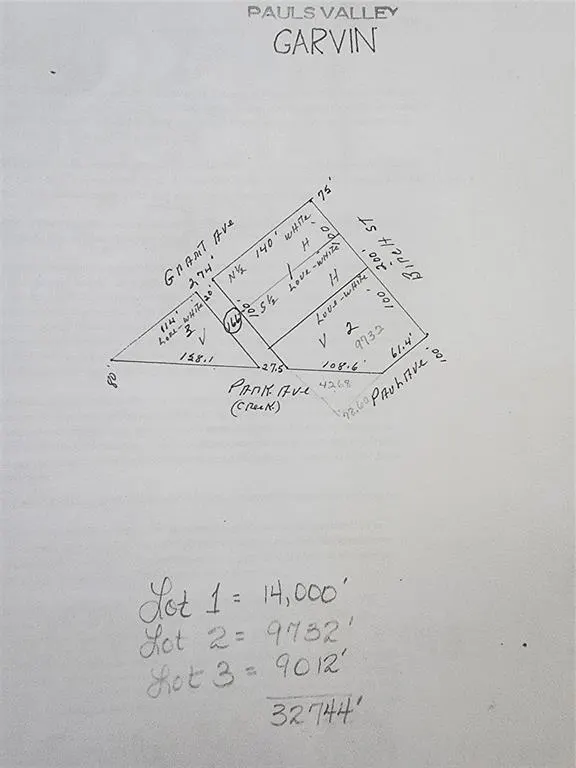 PAULS VALLEY
GARVIN
75'
GRANT AVE
2.74'
20'
140' WHITE
N ½
H
100
BIRCH ST
200'
S ½
1
LOVE-WHITE
H
100'
114'
LOVE-WHITE
3
V
166
100'
LOVE-WHITE
V 2
9732
158.1
27.5
108.6'
61.4'
100'
80'
PARK AVE
(Creek)
4268
78.60
PAUL AVE
Lot 1 = 14,000'
Lot 2 = 9732'
Lot 3 = 9012'
32744'